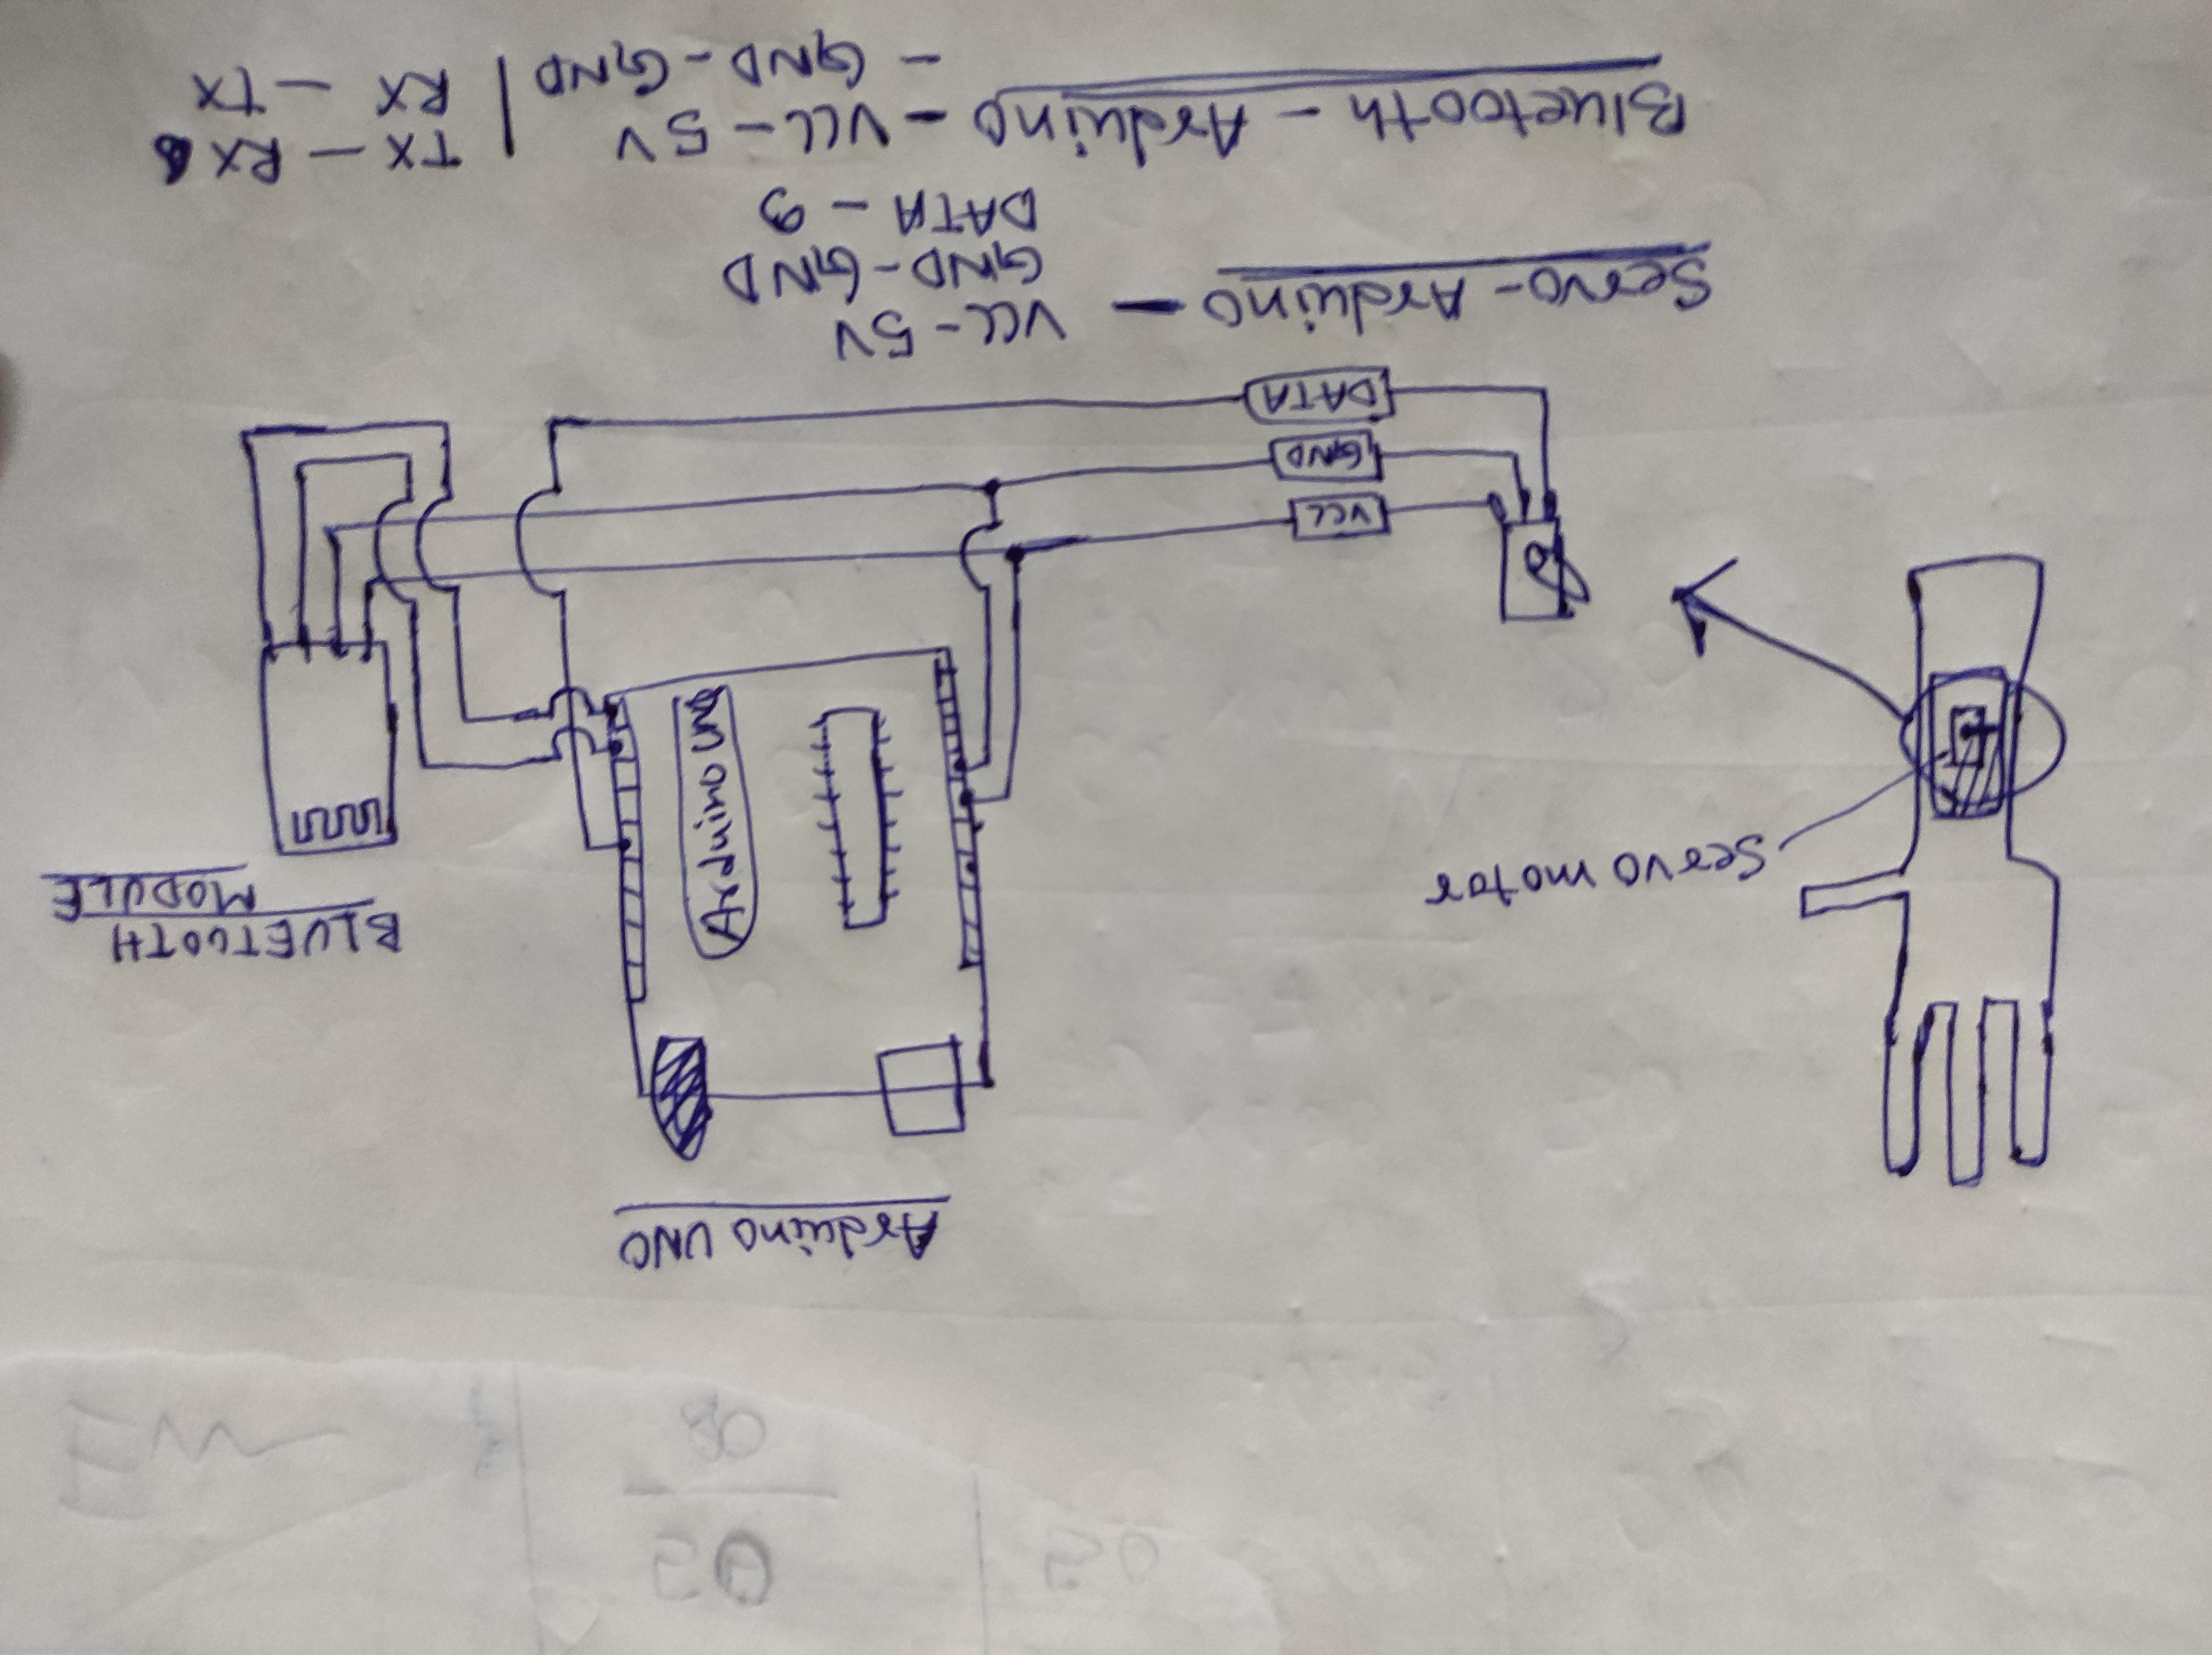 Arduino UNO
BLUETOOTH
MODULE
Servo motor
Arduino
VCC
GND
DATA
Servo-Arduino — VCC-5V
GND-GND
DATA - 3
Bluetooth - Arduino - VCC-5V | TX - RX
- GND-GND | RX - TX